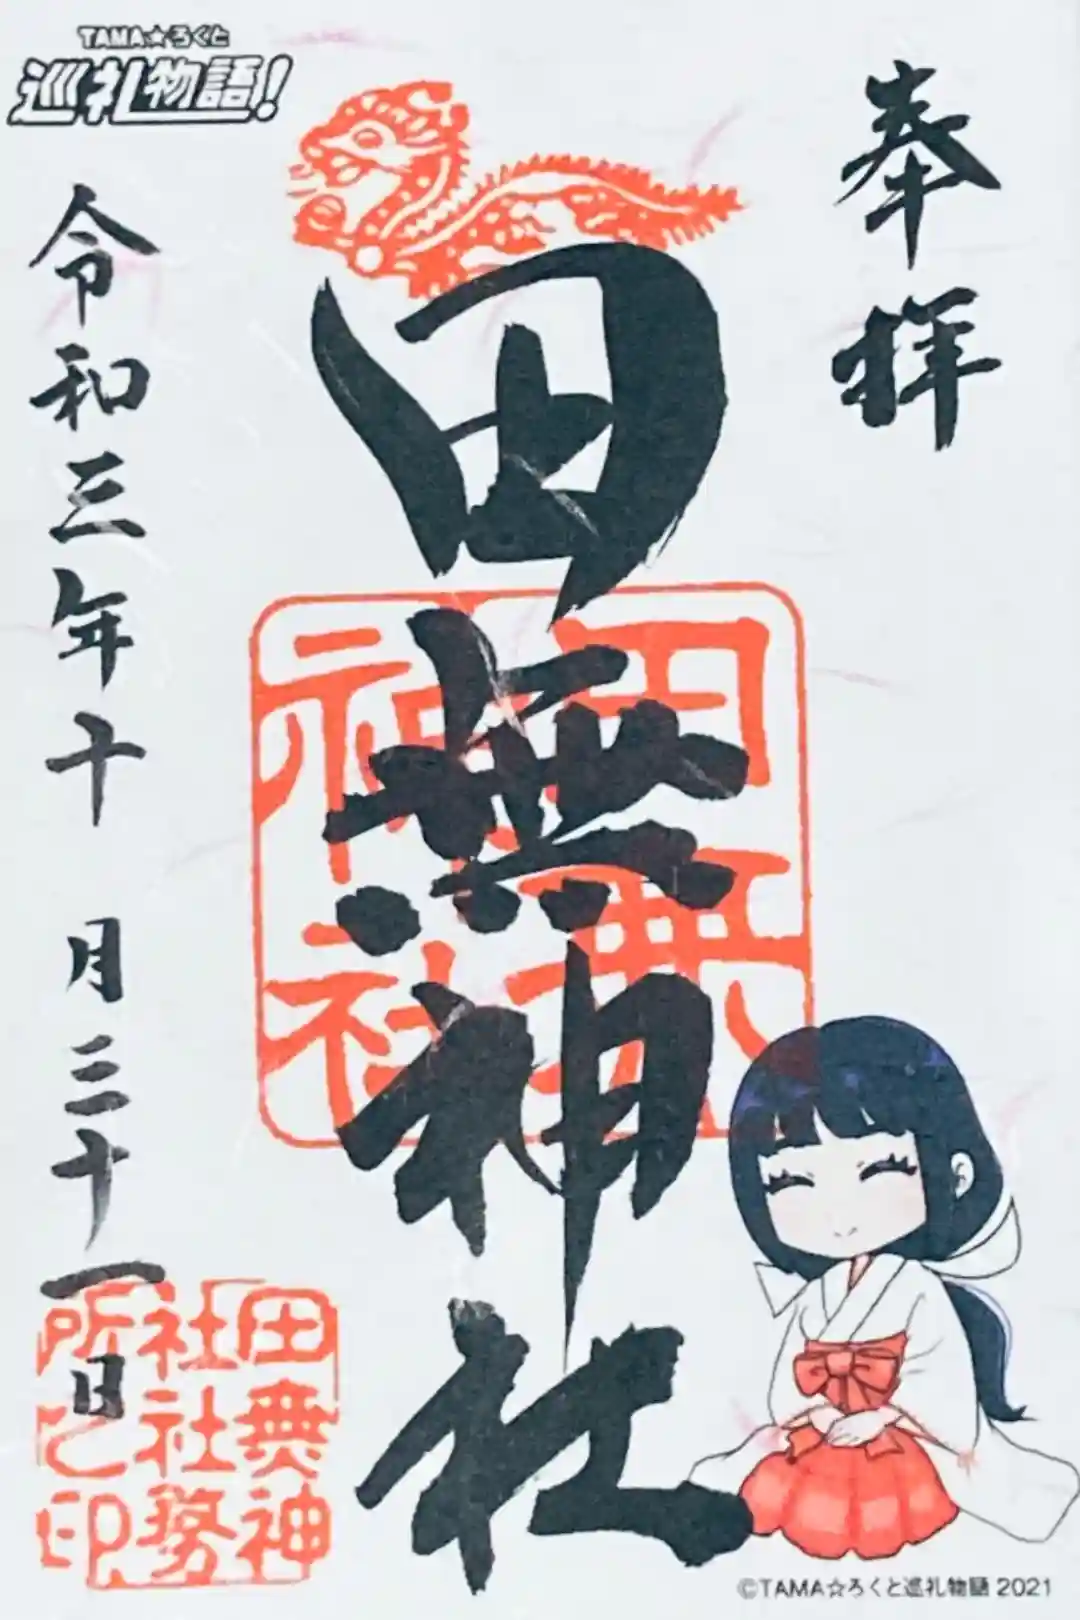 TAMA☆ろくと
巡礼物語!
奉拝
田無神社
田無
神社
令和三年十月三十一日
田無神
社社務
所之印
©TAMA☆ろくと巡礼物語 2021